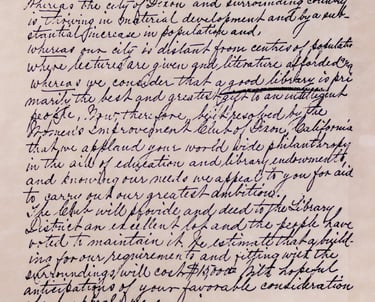 Whereas the city of Dixon and surrounding country
is thriving in material development and by a sub-
stantial increase in population and
whereas our city is distant from centres of population
where lectures are given and literature afforded and
whereas we consider that a good library is pri-
marily the best and greatest gift to an intelligent
people, Now, therefore, be it resolved by the
Women's Improvement Club of Dixon, California
that we applaud your world wide philanthropy
in the aid of education and library endowments,
and knowing our needs we appeal to you for aid
to carry out our greatest ambition.
The Club will provide and deed to the Library
District an excellent lot and the people have
voted to maintain it. We estimate that a build-
ing for our requirements and fitting with the
surroundings will cost $ With hopeful
anticipations of your favorable consideration